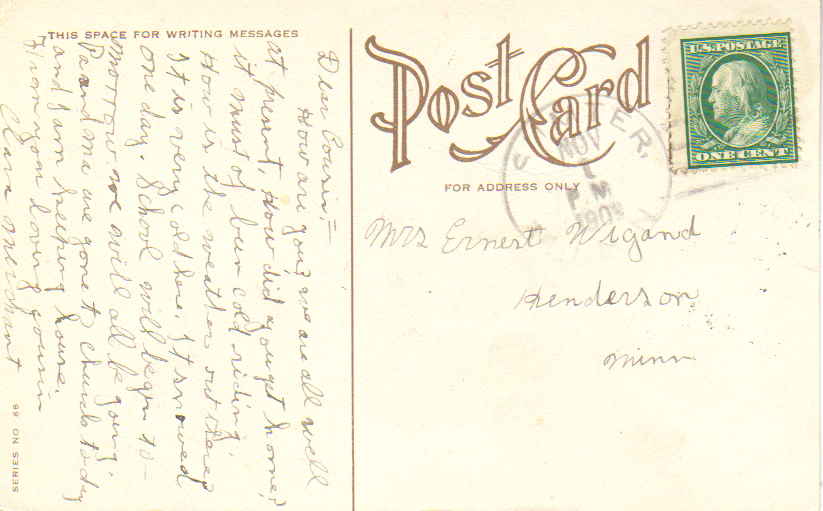 THIS SPACE FOR WRITING MESSAGES
Dear Cousin:—
How are you? we are all well
at present. How did you get home?
it must of been cold riding.
How is the weather out there?
It is very cold here. It snowed
one day. School will begin to-
morrow we will all be going.
Pa and ma are gone to church today
and I am keeping house.
From your loving cousin
Clara
SERIES NO 66
Post Card
FOR ADDRESS ONLY
NOV
1
P M
U.S. POSTAGE
ONE CENT
Mrs Ernest Wigand
Henderson
Minn